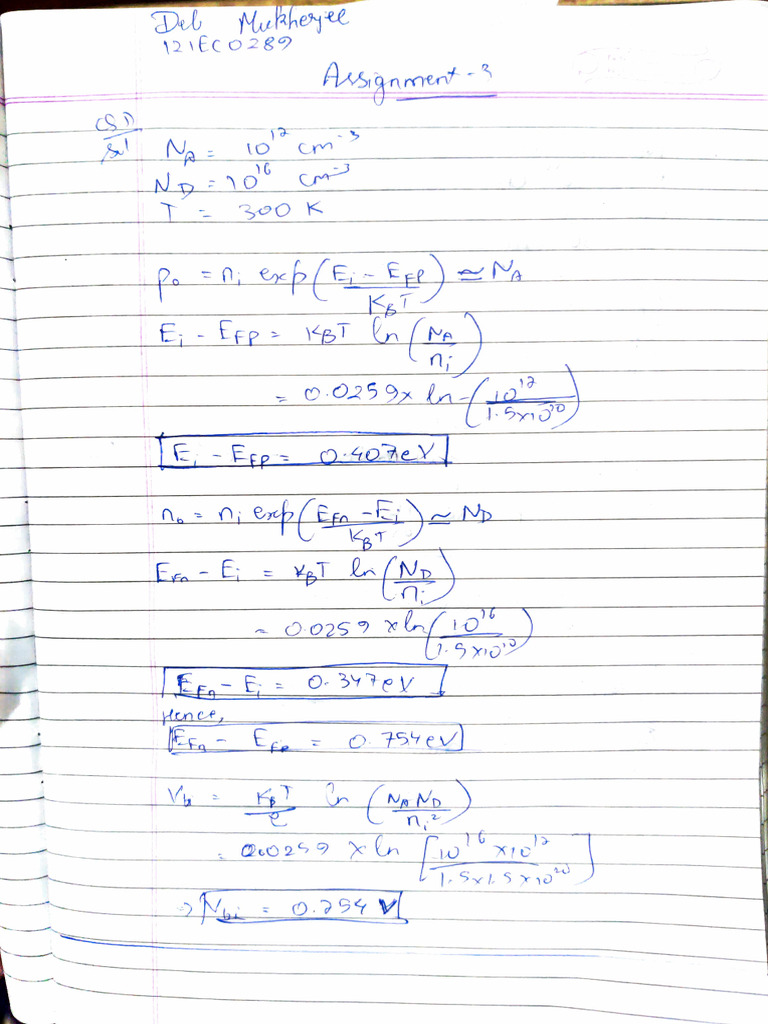 Deb Mukherjee
121EC0289
Assignment-3
Q5 1)
Sol
N_A = 10^17 cm^-3
N_D = 10^16 cm^-3
T = 300 K
p_0 = n_i exp((E_i - E_Fp)/(K_B T)) ≃ N_A
E_i - E_Fp = K_B T ln(N_A/n_i)
= 0.0259 x ln (10^17/(1.5x10^10))
E_i - E_Fp = 0.407 eV
n_0 = n_i exp((E_Fn - E_i)/(K_B T)) ≃ N_D
E_Fn - E_i = K_B T ln(N_D/n_i)
= 0.0259 x ln(10^16/(1.5x10^10))
E_Fn - E_i = 0.347 eV
Hence,
E_Fn - E_Fp = 0.754 eV
V_bi = K_B T/e ln (N_A N_D/n_i^2)
= 0.0259 x ln [10^16 x 10^17/(1.5x1.5x10^20)]
⇒ V_bi = 0.754 V